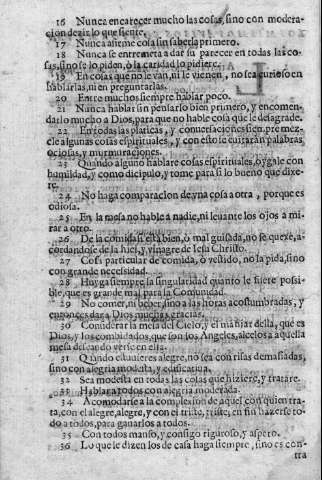 16 Nunca encarecer mucho las cosas, sino con modera-
cion dezir lo que siente.
17 Nunca afirme cosa sin saberla primero.
18 Nunca se entremeta a dar su parecer en todas las co-
sas, sino se lo piden, ò la caridad lo pidiere.
19 En cosas que no le van, ni le vienen, no sea curioso en
hablarlas, ni en preguntarlas.
20 Entre muchos siempre hablar poco.
21 Nunca hablar sin pensarlo bien primero, y encomen-
darlo mucho a Dios, para que no hable cosa que le desagrade.
22 En todas las platicas, y conuersaciones siempre mez-
cle algunas cosas espirituales, y con esto se euitaràn palabras
ociosas, y murmuraciones.
23 Quando alguno hablare cosas espirituales, oygale con
humildad, y como dicipulo, y tome para si lo bueno que dixe-
re.
24 No haga comparacion de vna cosa a otra, porque es
odiosa.
25 En la mesa no hable a nadie, ni leuante los ojos a mi-
rar a otro.
26 De la comida si està bien, ò mal guisada, no se quexe, a-
cordandose de la hiel, y vinagre de Iesu Christo.
27 Cosa particular de comida, ò vestido, no la pida, sino
con grande necesidad.
28 Huyga siempre la singularidad quanto le fuere possi-
ble, que es grande mal para la Comunidad.
29 No comer, ni beber, sino a las horas acostumbradas, y
entonces dar a Dios muchas gracias.
30 Considerar la mesa del Cielo, y el manjar della, que es
Dios, y los combidados, que son los Angeles, alce los a aquella
mesa deseando verse en ella.
31 Quando estuuieres alegre, no sea con risas demasiadas,
sino con alegria modesta, y edificatiua.
32 Sea modesta en todas las cosas que hiziere, y tratare.
33 Hablar a todos con alegria moderada.
34 Acomodarse a la complexion de aquel con quien tra-
ta, con el alegre, alegre, y con el triste, triste, en fin hazerse to-
do a todos, para ganarlos a todos.
35 Con todos manso, y consigo riguroso, y aspero.
36 Lo que le dizen los de casa haga siempre, sino es con-
tra